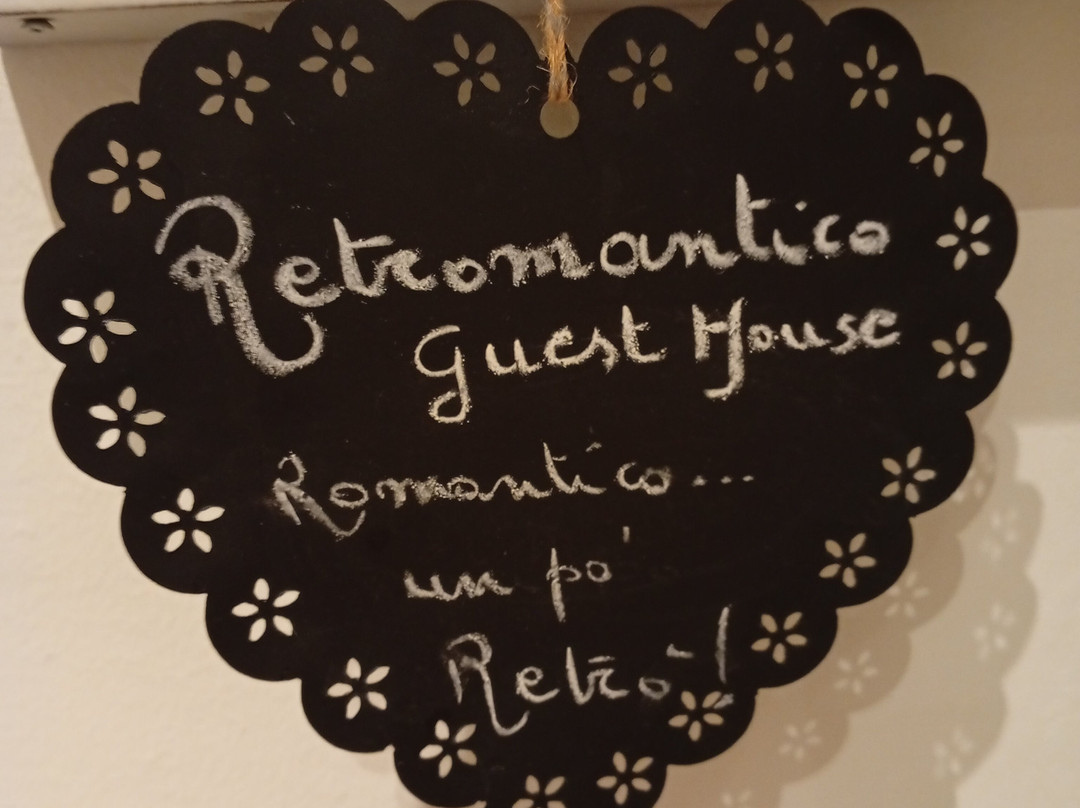 Retromantico
Guest House
Romantico...
un po'
Retrò!